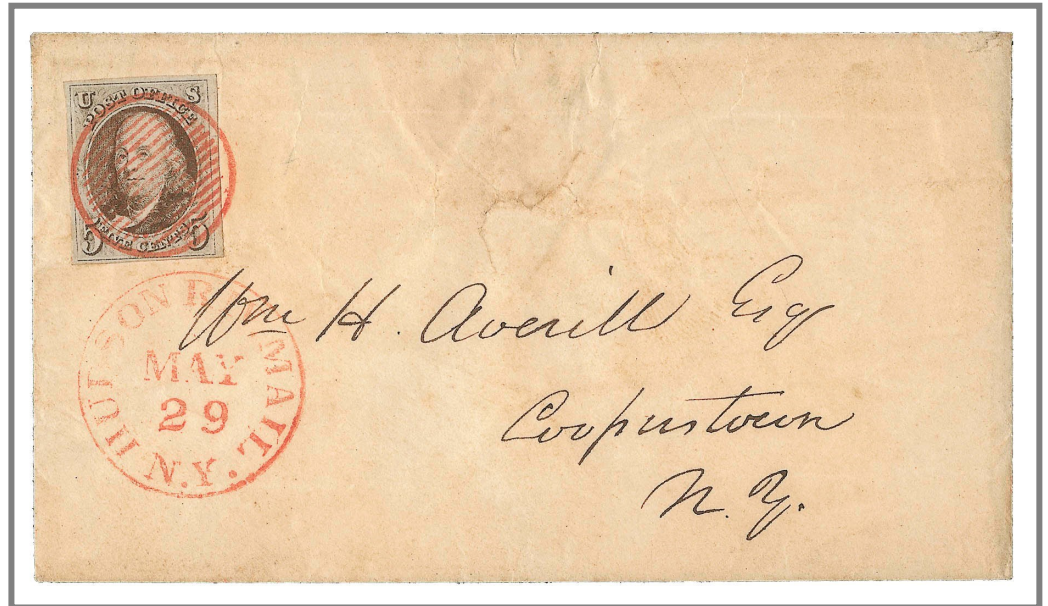 U S
POST OFFICE
FIVE CENTS
5 5
HUDSON RIV. MAIL.
MAY
29
N.Y.
Wm H. Averill Esq
Cooperstown
N. Y.